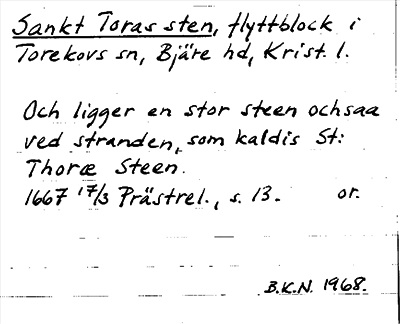 Sankt Toras sten, flyttblock i
Torekovs sn, Bjäre hd, Krist. l.
Och ligger en stor steen ochsaa
ved stranden, som kaldis St:
Thoræ Steen.
1667 17/3 Prästrel., s. 13. or.
B.K.N. 1968.